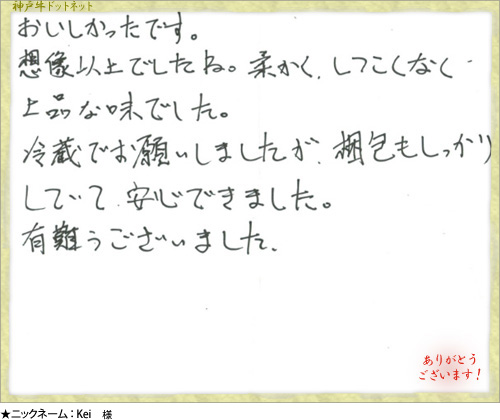 神戸牛ドットネット
おいしかったです。
想像以上でしたね。柔かく、しつこくなく
上品な味でした。
冷蔵でお願いしましたが、梱包もしっかり
していて、安心できました。
有難うございました。
ありがとう
ございます!
★ニックネーム:Kei 様